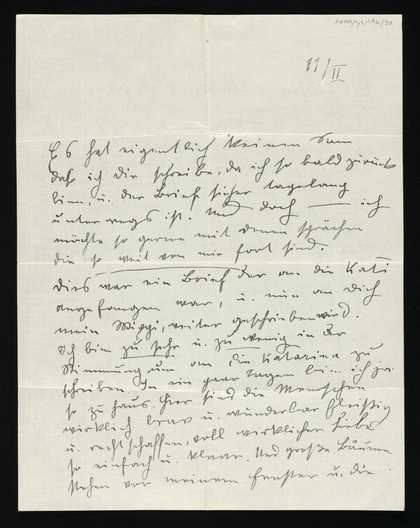 11/II
Es hat eigentlich keinen Sinn
daß ich dir schreibe, da ich so bald zurück
bin, u. der Brief sicher tagelang
unterwegs ist. Und doch — ich
möchte so gerne mit denen sprechen
die so weit von mir fort sind.
Dies war ein Brief der an die Kati
angefangen war, u. nun an dich
mein, weiter geschrieben wird.
Ich bin zu sehr u. zu wenig in der
Stimmung um an die Katarina zu
schreiben. In ein paar Tagen bi... ich ja
so zu haus. Hier sind die Menschen
wirklich brav u. wunderbar fleißig
u. rechtschaffen, voll wirklicher Liebe
so einfach u. klaar. Und große Bäume
stehen vor meinem Fenster u. die